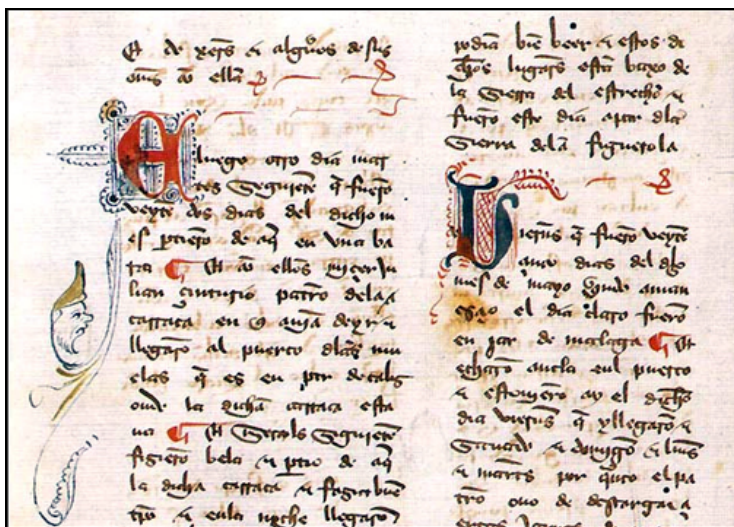 de xerez & algũos de sus
oms̃ cõ ellos
E luego otro dia mar
tes seguiẽte q̃ fuerõ
veynte & dos dias del dicho m
es ptierõ de aq̃ en una ba
rca Et cõ ellos micer Ju
lian çenturio patrõ dela
carraca en q̃ aviã de yr &
llegarõ al puerto dlas mu
elas q̃ es en par de caliz
onde la dicha carraca esta
va Et seguiẽte
fizierõ bela & ptierõ de aq̃
la dicha carraca & fizo buẽ
tpõ & enla noche llegarõ
podiã biẽ veer & estos di
chos lugares estã baxo de
la sierra del estrecho &
fuerõ este dia a par dla
sierra dela figuerola
Viernes q̃ fuerõ veynte
dias del dho
mes de mayo qñdo aman
esçio el dia claro fuerõ
en par de malaga Et
echarõ ancla enl puerto
& estovierõ ay el dicho
dia viernes q̃ y llegarõ &
sabado & domĩgo & lunes
& martes por q̃nto el pa
trõ ovo de descargar